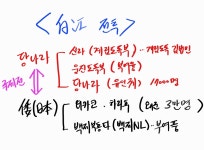 <白江 전투>
당나라
신라 (계림도독부) - 계림도독 김법민
웅진도독부 (부여융)
당나라 (유인궤) 17000명
국제전
倭(日本)
야마토 · 키타큐 (왜군 3만명)
백제부흥군 (백제NL) - 부여풍